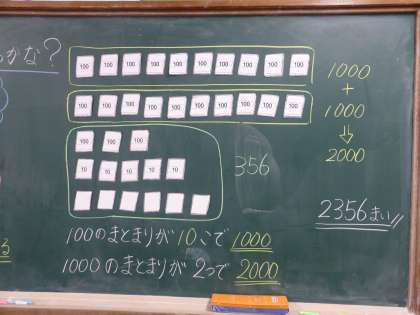 かな?
100 100 100 100 100 100 100 100 100 100
100 100 100 100 100 100 100 100 100 100
1000
+
1000
⇓
2000
100 100 100
10 10 10 10 10
356
2356まい
100のまとまりが10こで1000
1000のまとまりが2つで2000
る